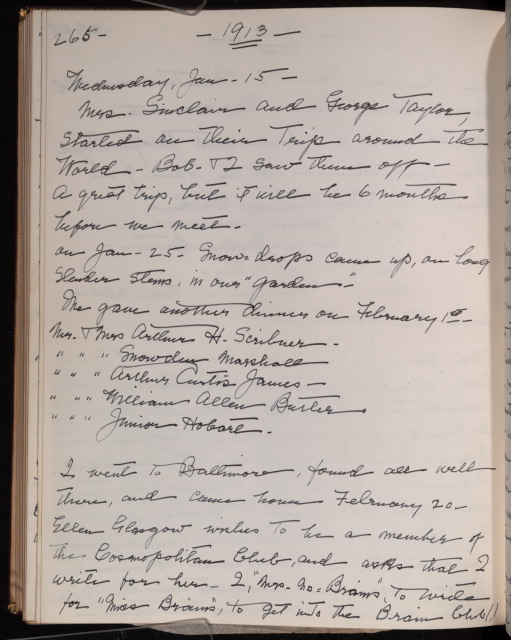 265- — 1913 —
Wednesday, Jan - 15 -
Mrs. Sinclair and George Taylor,
Started on their Trip around the
World - Bob - & I saw them off -
a great trip, but it will be 6 months
before we meet -
on Jan - 25 - Snow = drops came up, on long
Slender Stems, in our "garden" -
We gave another dinner on February 1st -
Mr. & Mrs Arthur H. Scribner -
" " " Snowden Marshall
" " " Arthur Curtis James -
" " " William Allen Butler
" " " Junior Hobart -
I went to Baltimore, found all well
there, and came home February 20 -
Ellen Glasgow wishes to be a member of
the Cosmopolitan Club, and asks that I
write for her - I, "Mrs. No = Brains", to write
for "Miss Brains", to get into the Brain Club!!